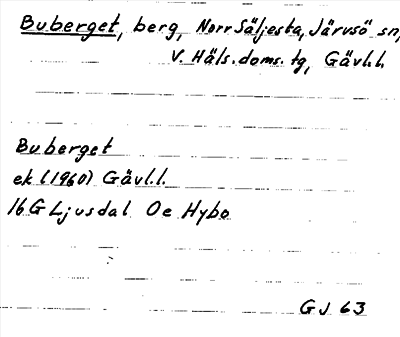 Buberget, berg, Norr Säljesta, Järvsö sn,
V. Häls. doms. tg, Gävl.l.
Buberget
ek (1960) Gävl.l.
16 G Ljusdal Oe Hybo
GJ 63